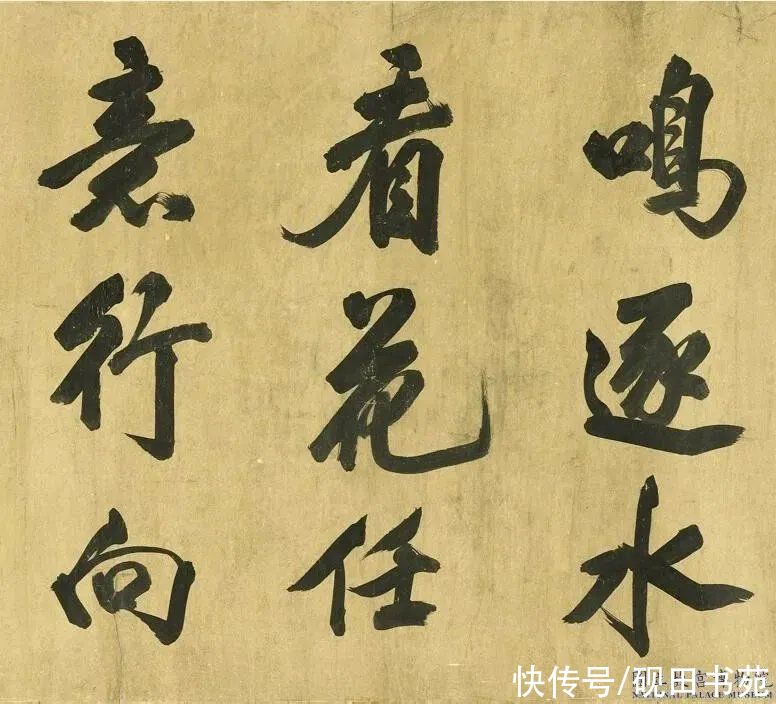 鳴逐水
看花任
意行向
快传号/砚田书苑
NATIONAL PALACE MUSEUM